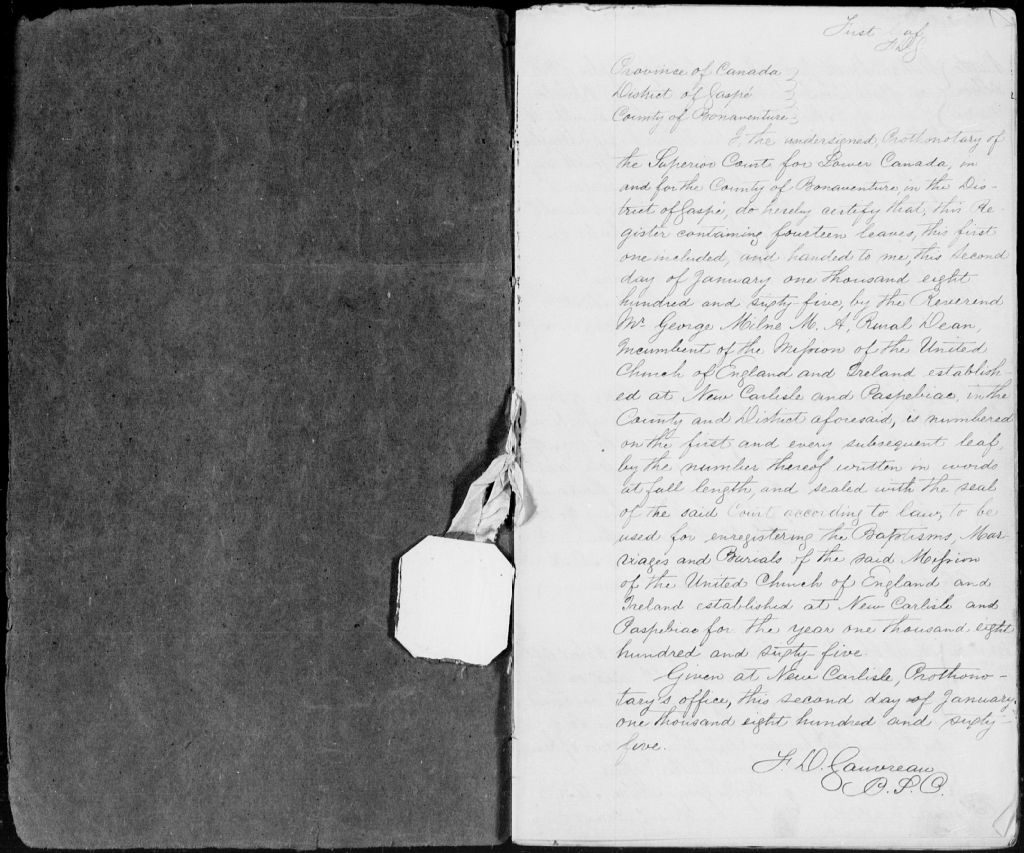 First Leaf
F.D.G.
Province of Canada
District of Gaspé
County of Bonaventure
I, the undersigned, Prothonotary of
the Superior Court for Lower Canada, in
and for the County of Bonaventure, in the Dis-
trict of Gaspé, do hereby certify that, this Re-
gister containing fourteen leaves, this first
one included, and handed to me, this second
day of January one thousand eight
hundred and sixty five, by the Reverend
Mr. George Milne M. A., Rural Dean,
Incumbent of the Mission of the United
Church of England and Ireland establish-
ed at New Carlisle and Paspebiac, in the
County and District aforesaid, is numbered
on the first and every subsequent leaf,
by the number thereof written in words
at full length, and sealed with the seal
of the said Court according to law, to be
used for enregistering the Baptisms, Mar-
riages and Burials of the said Mission
of the United Church of England and
Ireland established at New Carlisle and
Paspebiac for the year one thousand eight
hundred and sixty five.
Given at New Carlisle, Prothono-
tary's office, this second day of January,
one thousand eight hundred and sixty-
five.
F. D. Gauvreau
P. S. C.